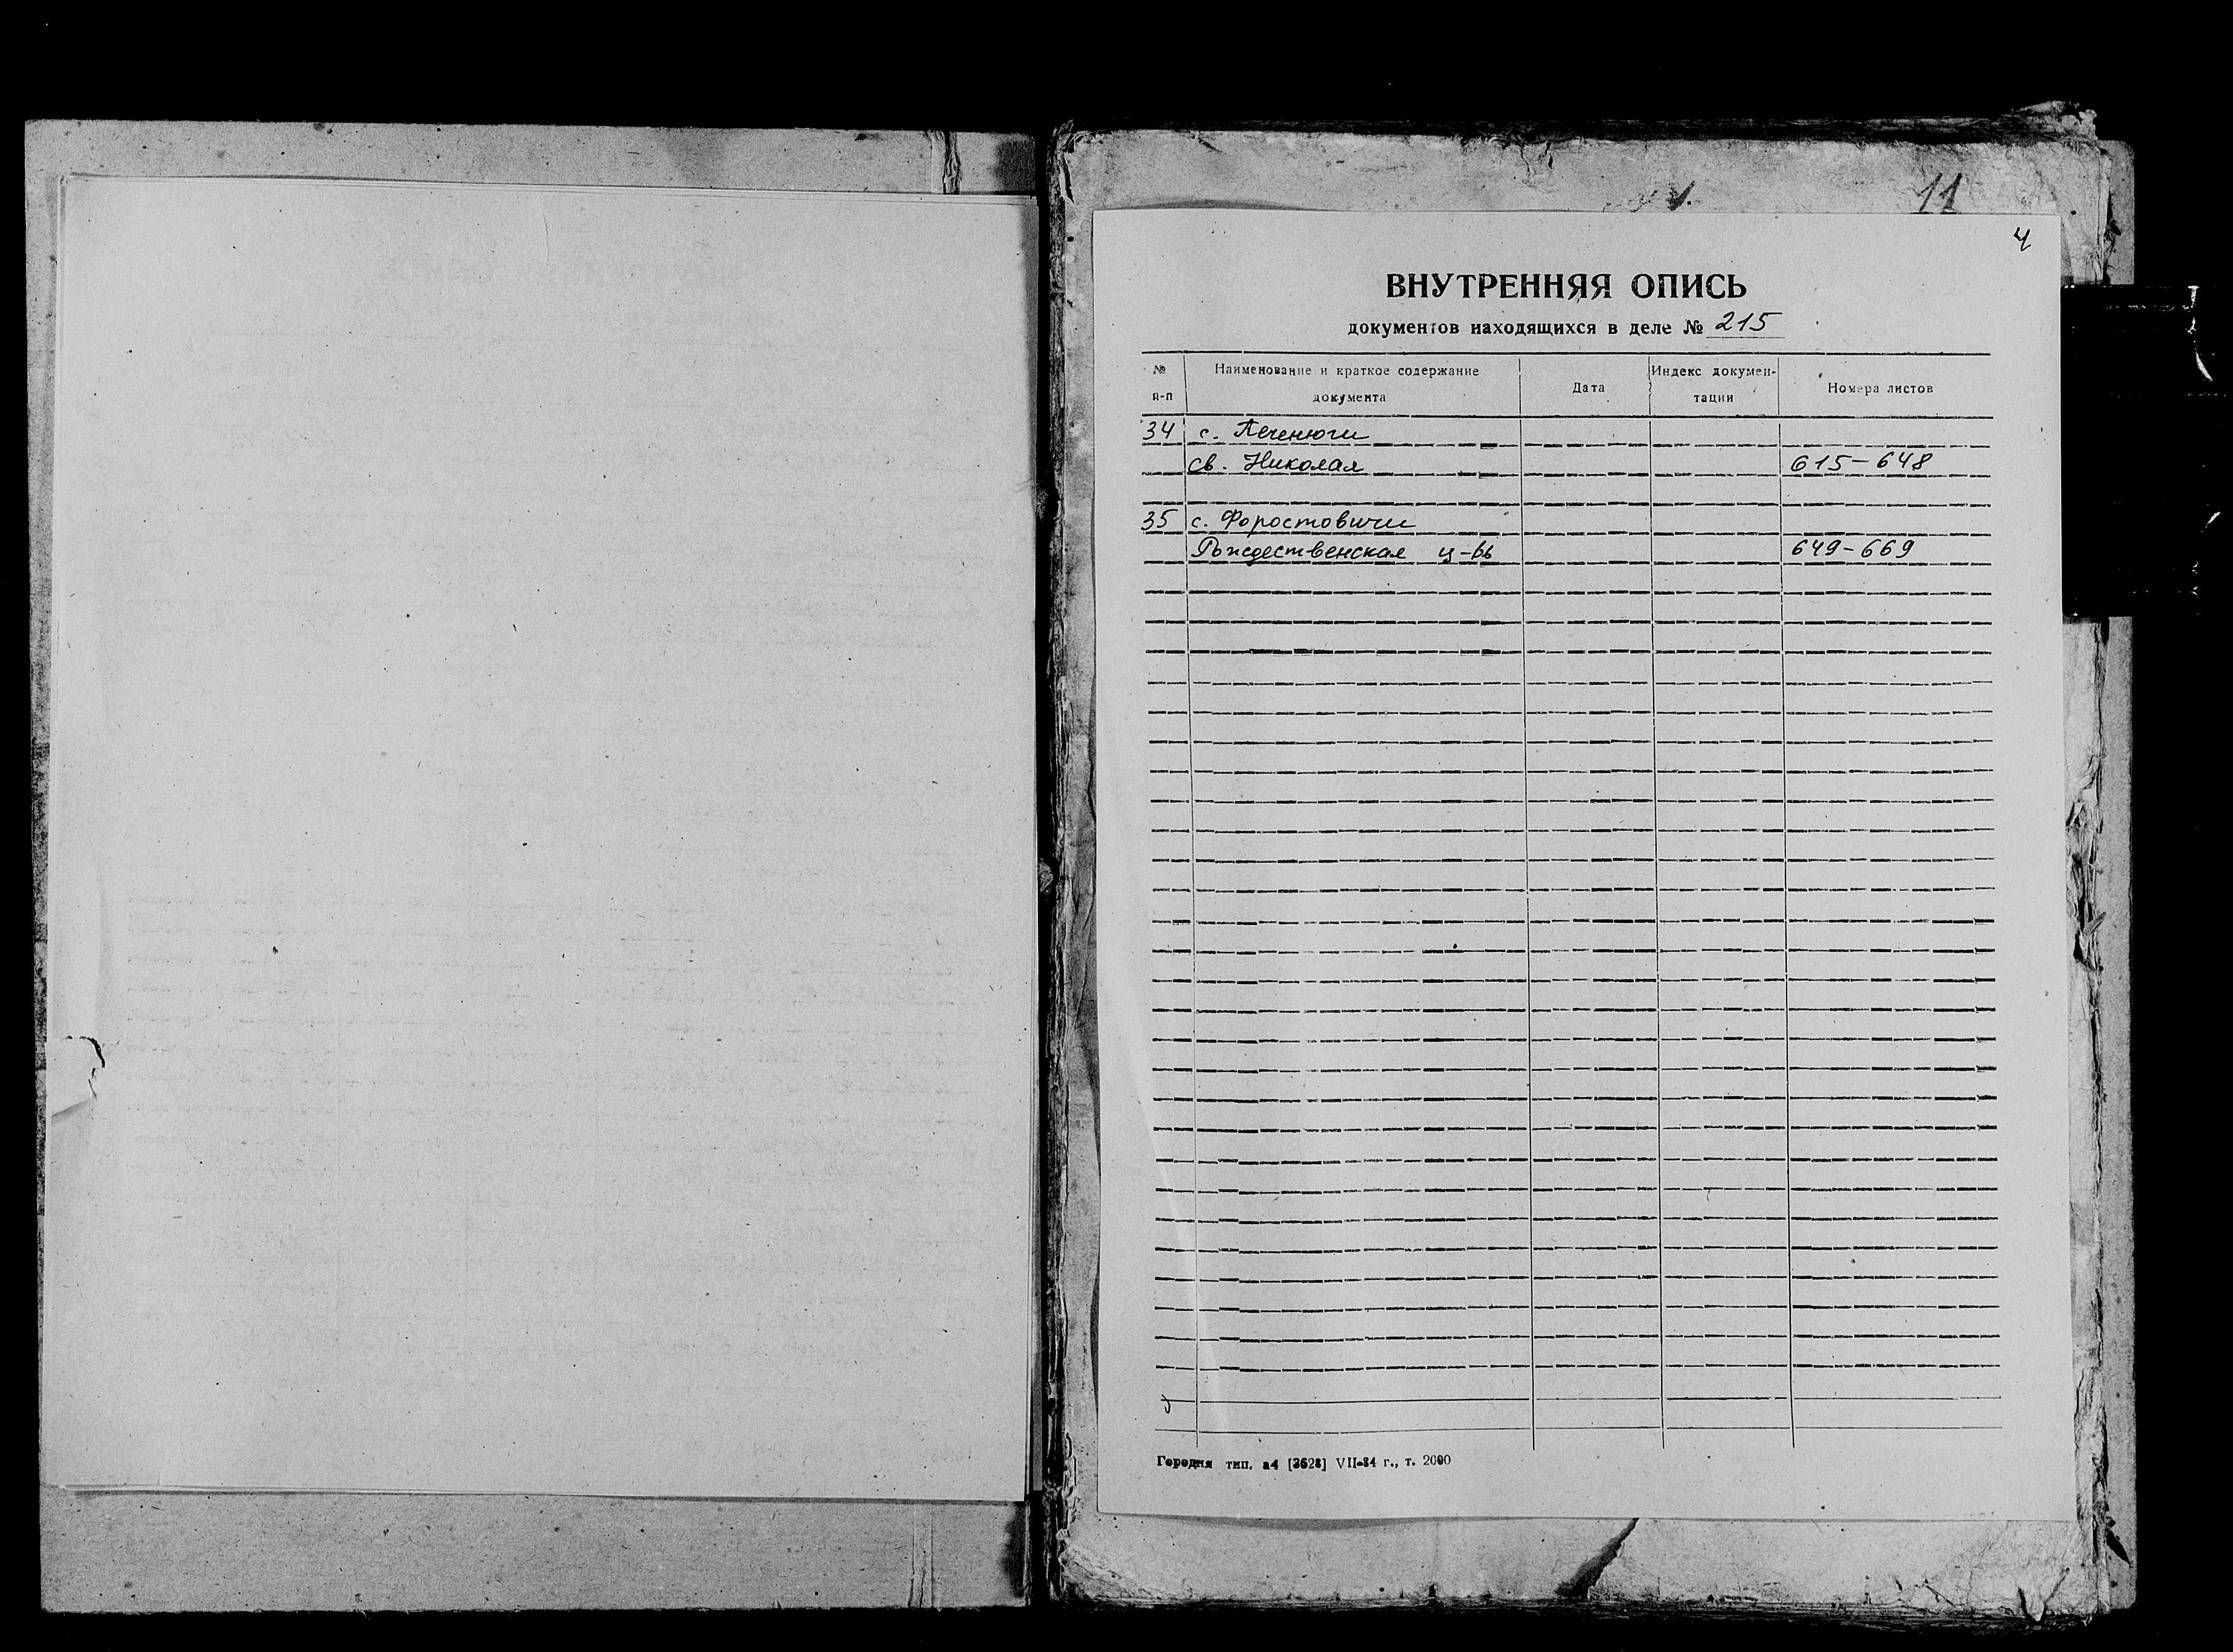 11
4
ВНУТРЕННЯЯ ОПИСЬ
документов находящихся в деле № 215
№ п-п Наименование и краткое содержание документа Дата Индекс документации Номера листов
34 с. Печенюги
св. Николая 615-648
35 с. Форостовичи
Рождественская ц-вь 649-669
Городня тип. з4 [3628] VII-84 г., т. 2000